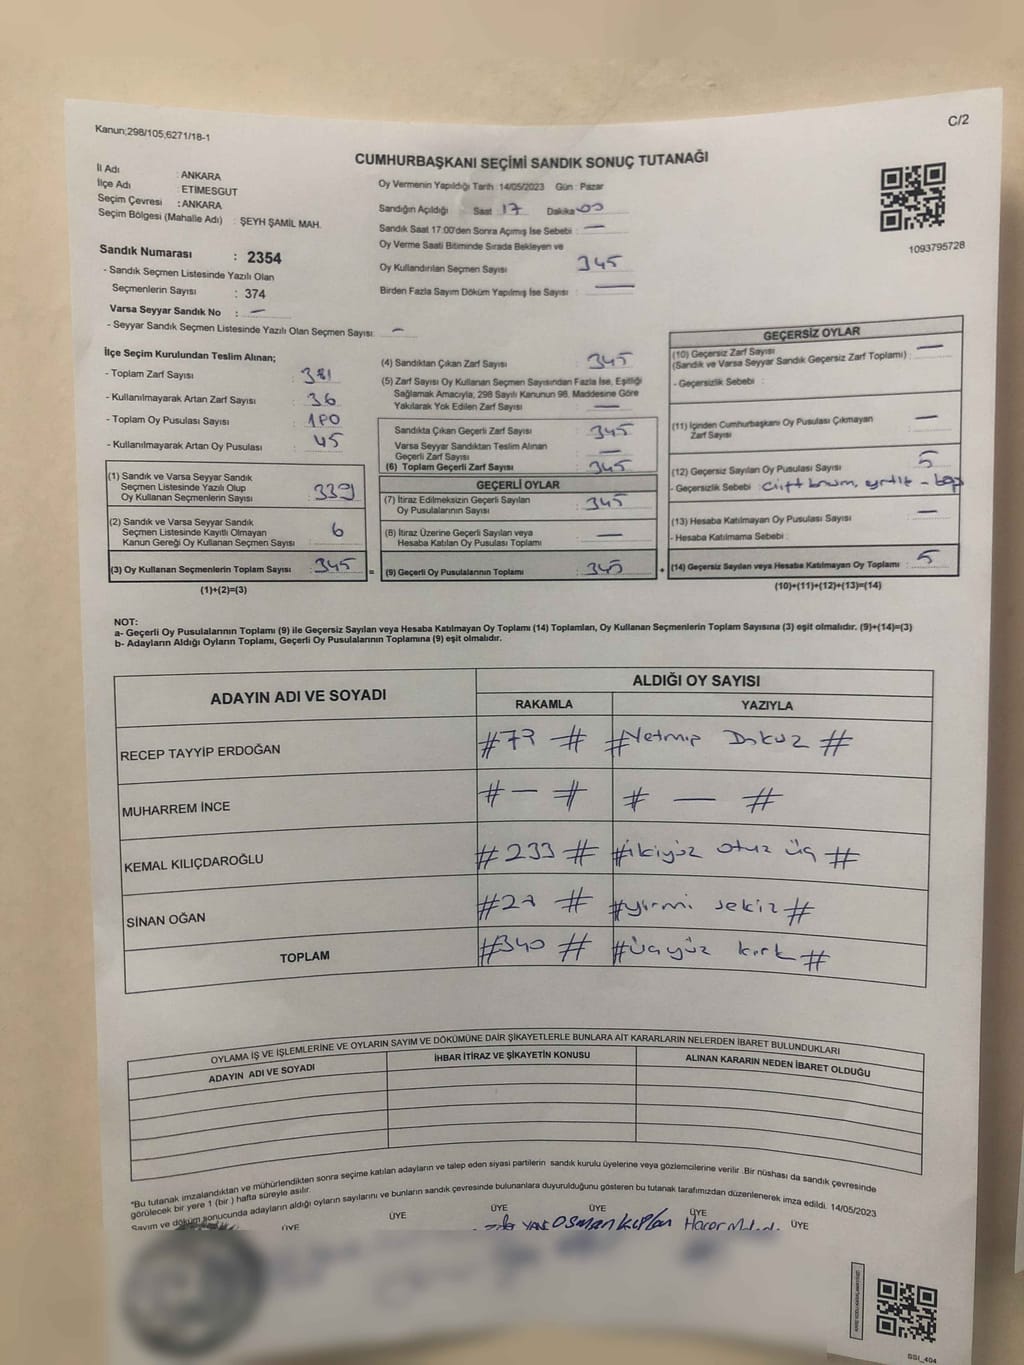 Kanun;298/105,6271/18-1
C/2
CUMHURBAŞKANI SEÇİMİ SANDIK SONUÇ TUTANAĞI
İl Adı : ANKARA
İlçe Adı : ETİMESGUT
Seçim Çevresi : ANKARA
Seçim Bölgesi (Mahalle Adı) : ŞEYH ŞAMİL MAH.
Sandık Numarası : 2354
- Sandık Seçmen Listesinde Yazılı Olan
Seçmenlerin Sayısı : 374
Varsa Seyyar Sandık No : —
- Seyyar Sandık Seçmen Listesinde Yazılı Olan Seçmen Sayısı: —
Oy Vermenin Yapıldığı Tarih :14/05/2023 Gün : Pazar
Sandığın Açıldığı Saat 17 Dakika 00
Sandık Saat 17:00'den Sonra Açımış İse Sebebi : —
Oy Verme Saati Bitiminde Sırada Bekleyen ve
Oy Kullandırılan Seçmen Sayısı 345
Birden Fazla Sayım Döküm Yapılmış İse Sayısı : —
1093795728
İlçe Seçim Kurulundan Teslim Alınan;
- Toplam Zarf Sayısı : 381
- Kullanılmayarak Artan Zarf Sayısı : 36
- Toplam Oy Pusulası Sayısı :
- Kullanılmayarak Artan Oy Pusulası : 45
(1) Sandık ve Varsa Seyyar Sandık
Seçmen Listesinde Yazılı Olup
Oy Kullanan Seçmenlerin Sayısı : 339
(2) Sandık ve Varsa Seyyar Sandık
Seçmen Listesinde Kayıtlı Olmayan
Kanun Gereği Oy Kullanan Seçmen Sayısı : 6
(3) Oy Kullanan Seçmenlerin Toplam Sayısı : 345 =
(1)+(2)=(3)
(4) Sandıktan Çıkan Zarf Sayısı : 345
(5) Zarf Sayısı Oy Kullanan Seçmen Sayısından Fazla İse, Eşitliği
Sağlamak Amacıyla, 298 Sayılı Kanunun 98. Maddesine Göre
Yakılarak Yok Edilen Zarf Sayısı : —
Sandıkta Çıkan Geçerli Zarf Sayısı : 345
Varsa Seyyar Sandıktan Teslim Alınan
Geçerli Zarf Sayısı : —
(6) Toplam Geçerli Zarf Sayısı : 345
GEÇERLİ OYLAR
(7) İtiraz Edilmeksizin Geçerli Sayılan
Oy Pusulalarının Sayısı : 345
(8) İtiraz Üzerine Geçerli Sayılan veya
Hesaba Katılan Oy Pusulası Toplamı : —
(9) Geçerli Oy Pusulalarının Toplamı : 345 +
GEÇERSİZ OYLAR
(10) Geçersiz Zarf Sayısı
(Sandık ve Varsa Seyyar Sandık Geçersiz Zarf Toplamı) : —
- Geçersizlik Sebebi :
(11) İçinden Cumhurbaşkanı Oy Pusulası Çıkmayan
Zarf Sayısı : —
(12) Geçersiz Sayılan Oy Pusulası Sayısı : 5
- Geçersizlik Sebebi : yırtık -
(13) Hesaba Katılmayan Oy Pusulası Sayısı : —
- Hesaba Katılmama Sebebi :
(14) Geçersiz Sayılan veya Hesaba Katılmayan Oy Toplamı : 5
(10)+(11)+(12)+(13)=(14)
NOT:
a- Geçerli Oy Pusulalarının Toplamı (9) ile Geçersiz Sayılan veya Hesaba Katılmayan Oy Toplamı (14) Toplamları, Oy Kullanan Seçmenlerin Toplam Sayısına (3) eşit olmalıdır. (9)+(14)=(3)
b- Adayların Aldığı Oyların Toplamı, Geçerli Oy Pusulalarının Toplamına (9) eşit olmalıdır.
ADAYIN ADI VE SOYADI ALDIĞI OY SAYISI
RAKAMLA YAZIYLA
RECEP TAYYİP ERDOĞAN #79 # #Yetmiş Dokuz #
MUHARREM İNCE # — # # — #
KEMAL KILIÇDAROĞLU #233 # #ikiyüz otuz üç #
SİNAN OĞAN #28 # #yirmi sekiz #
TOPLAM #340 # #üçyüz kırk #
OYLAMA İŞ VE İŞLEMLERİNE VE OYLARIN SAYIM VE DÖKÜMÜNE DAİR ŞİKAYETLERLE BUNLARA AİT KARARLARIN NELERDEN İBARET BULUNDUKLARI
ADAYIN ADI VE SOYADI İHBAR İTİRAZ VE ŞİKAYETİN KONUSU ALINAN KARARIN NEDEN İBARET OLDUĞU
*Bu tutanak imzalandıktan ve mühürlendikten sonra seçime katılan adayların ve talep eden siyasi partilerin sandık kurulu üyelerine veya gözlemcilerine verilir .Bir nüshası da sandık çevresinde
görülecek bir yere 1 (bir ) hafta süreyle asılır.
Sayım ve döküm sonucunda adayların aldığı oyların sayılarını ve bunların sandık çevresinde bulunanlara duyurulduğunu gösteren bu tutanak tarafımızdan düzenlenerek imza edildi. 14/05/2023
ÜYE ÜYE ÜYE ÜYE ÜYE ÜYE
Osman Kaplan
SSI_404